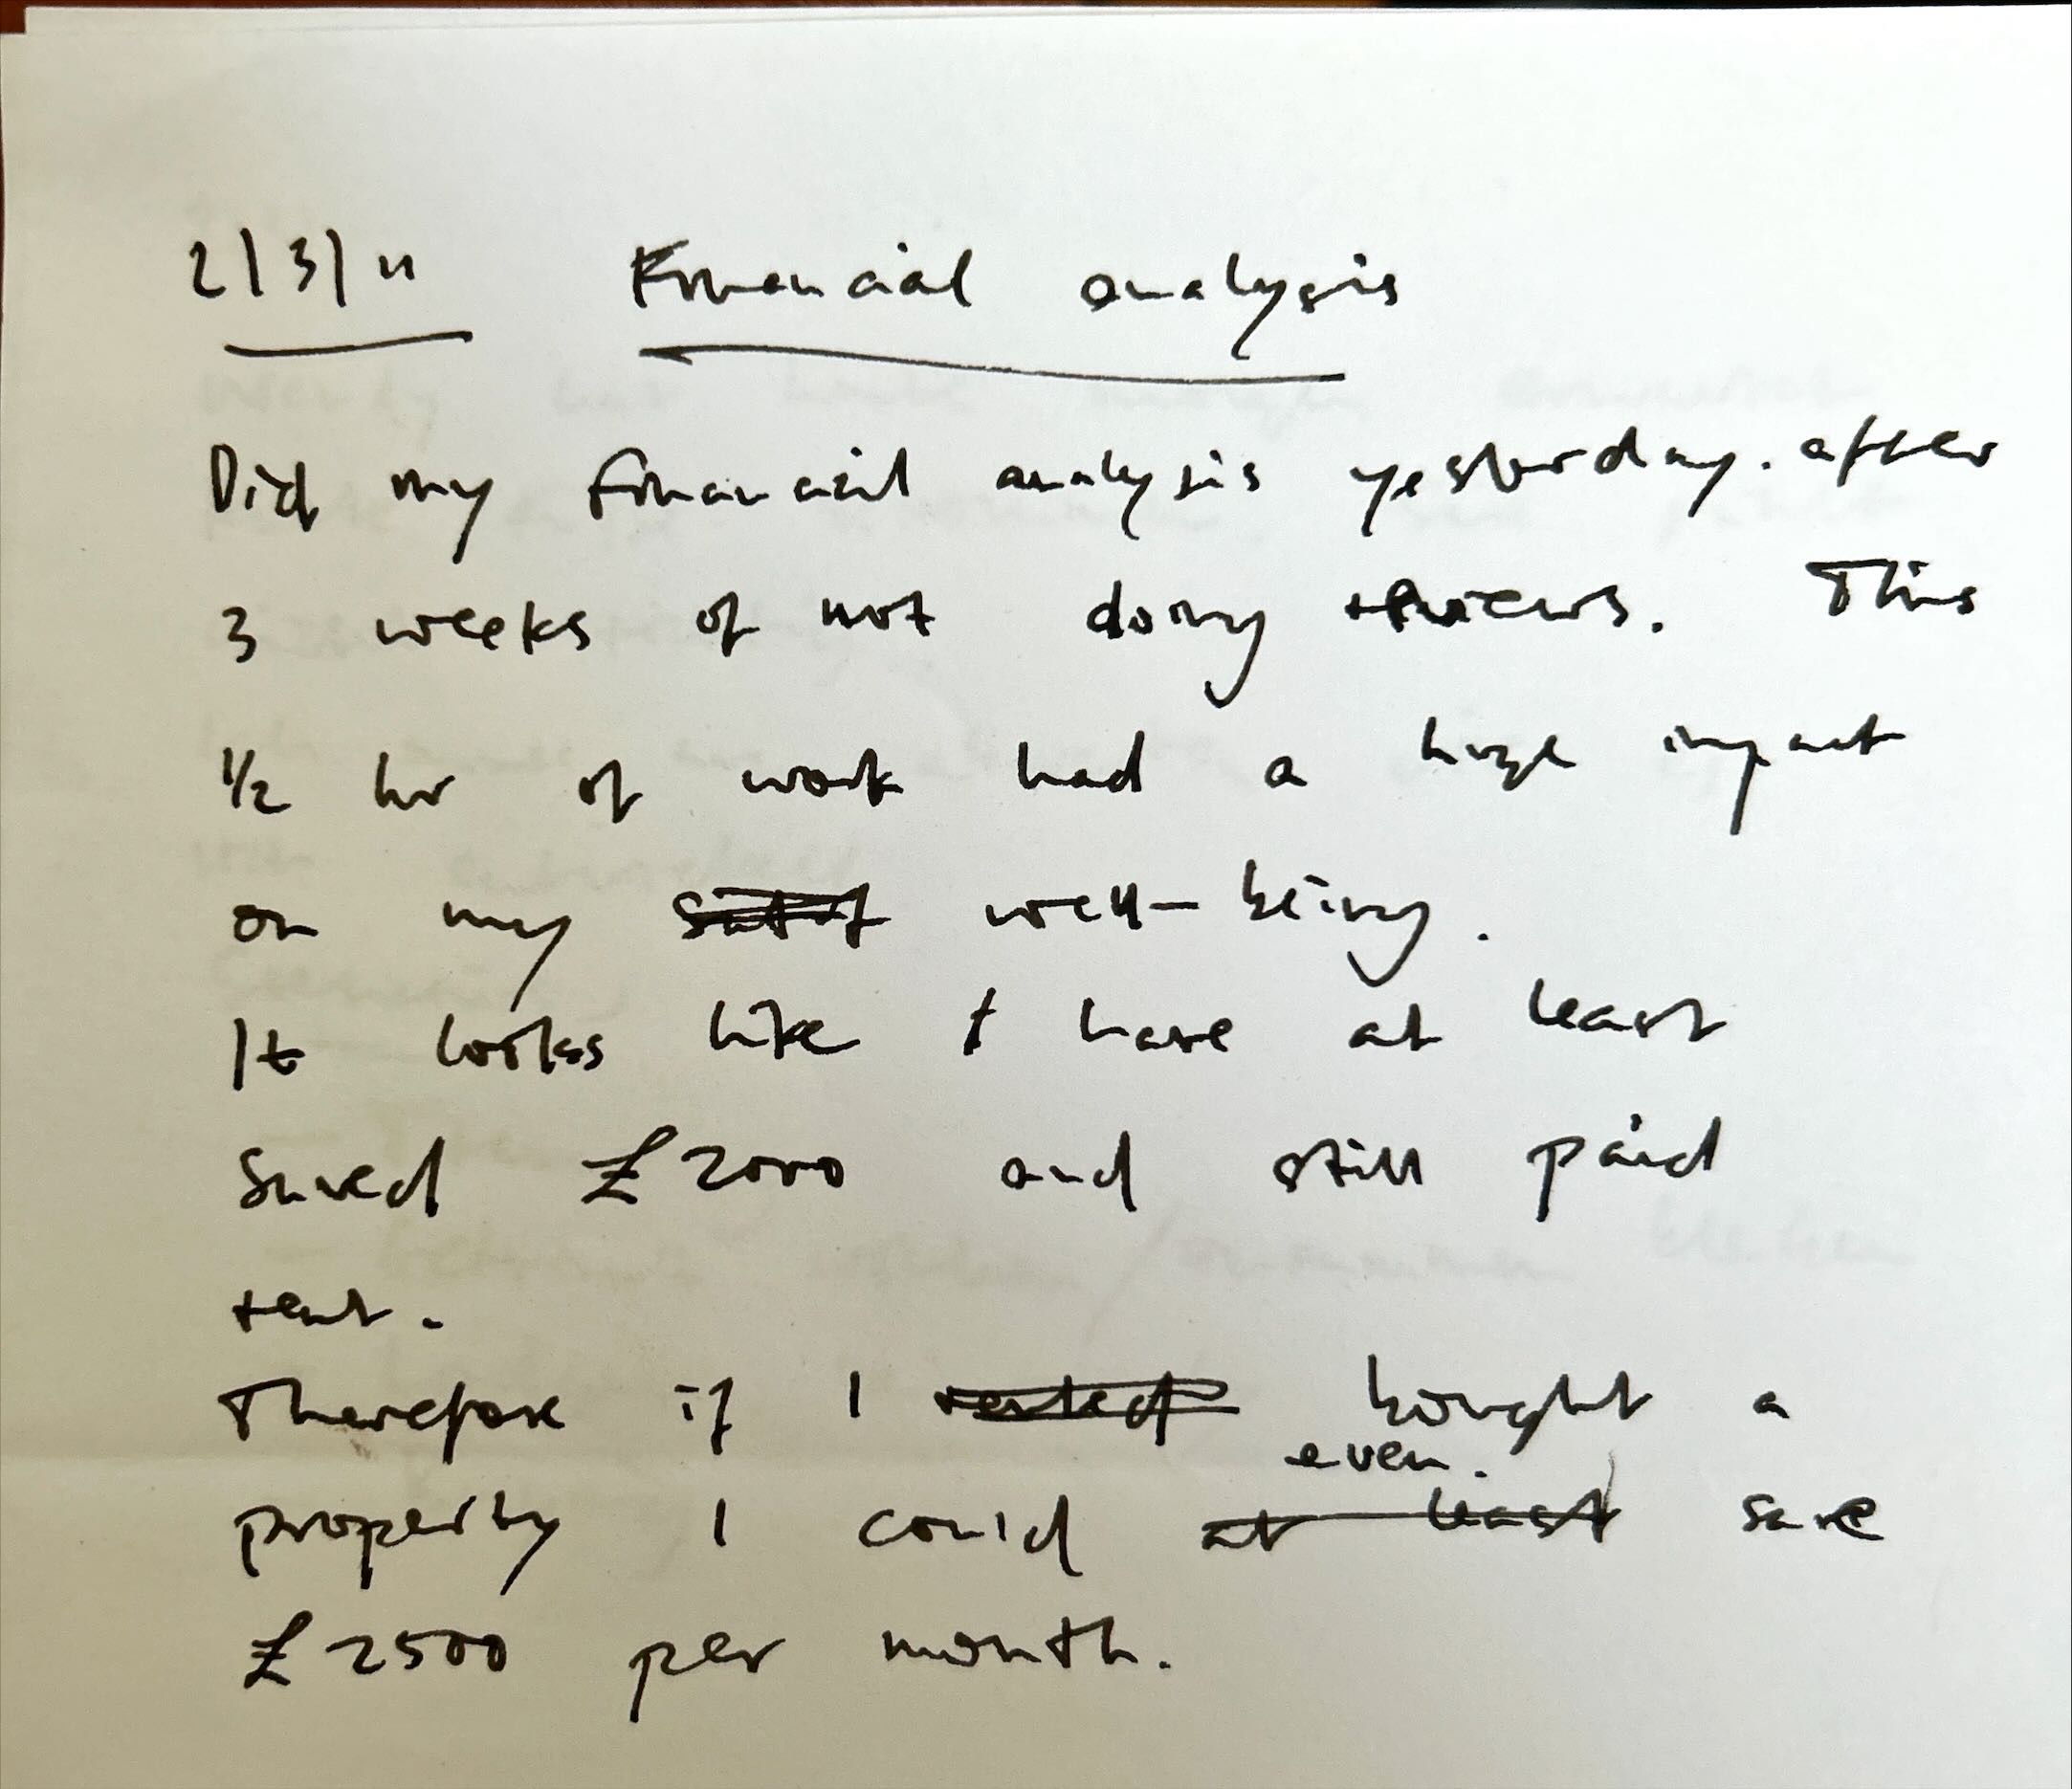 2/3/11 Financial analysis
Did my financial analysis yesterday. after
3 weeks of not doing reviews. This
1/2 hr of work had a huge impact
on my well-being.
It looks like I have at least
saved £2000 and still paid
rent.
Therefore if I rented bought a
even.
property I could at least save
£2500 per month.